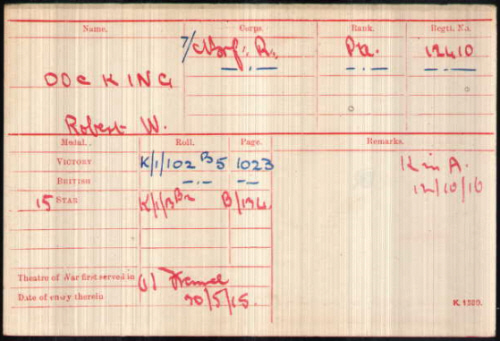 Name. Corps. Rank. Regtl. No.
7/Norf: R. Pte. 12410
DOCKING
Robert W.
Medal. Roll. Page. Remarks.
VICTORY K/1/102 B5 1023 K in A.
BRITISH —.— —.— 12/10/16
15 STAR K/1/3 B2 B/134.
Theatre of War first served in (1) France
Date of entry therein 30/5/15.
K. 1380.